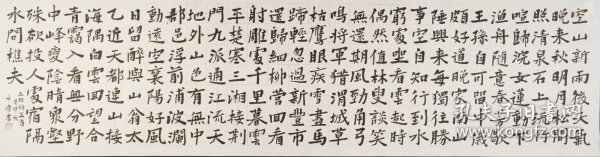 空山新雨後天氣
晚來秋明月松間
照清泉石上流竹
喧歸浣女蓮動下
漁舟隨意春芳歇
王孫自可留中歲
頗好道晚家南山
陲興來每獨往勝
事空自知行到水
窮處坐看雲起時
偶然值林叟談笑
無還期風勁角弓
鳴將軍獵渭城草
枯鷹眼疾雪盡馬
蹄輕忽過新豐市
還歸細柳營回看
射雕處千里暮雲
平楚塞三湘接荊
門九派通江流天
地外山色有無中
郡邑浮前浦波瀾
動遠空襄陽好風
日留醉與山翁太
乙近天都連山接
海隅白雲回望合
青靄入看無分野
中峰變陰晴衆壑
殊欲投人處宿隔
水問樵夫